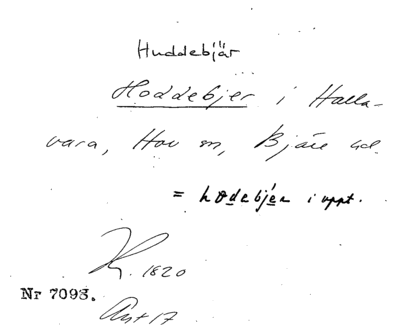 Huddebjär
Hoddebjer i Halla-
vara, Hov sn, Bjäre hd.
= hodebjer i uppt.
K. 1820
Nr 7098.
Ant 17